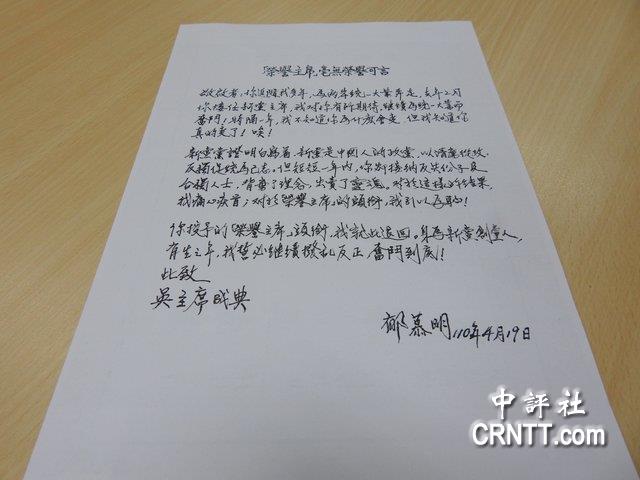 「榮譽主席」毫無榮譽可言
敬啟者,你追隨我多年,為兩岸統一大業奔走,去年2月
你接任新黨主席,我對你有所期待,繼續為統一大業而
奮鬥!時隔一年,我不知道你為什麼會變,但我知道你
真的變了!唉!
新黨黨證明白寫著,新黨是中國人的政黨,以清廉從政、
反獨促統為己志。但短短一年內,你別接納反共份子及
台獨人士,背棄了理念,出賣了靈魂。對於這樣的結果,
我痛心疾首;對於「榮譽主席」的頭銜,我引以為恥!
你授予的「榮譽主席」頭銜,我就此退回。身為新黨創黨人,
有生之年,我誓必繼續撥亂反正奮鬥到底!
此致
吳主席成典
郁慕明 110年4月19日
中評社
CRNTT.com